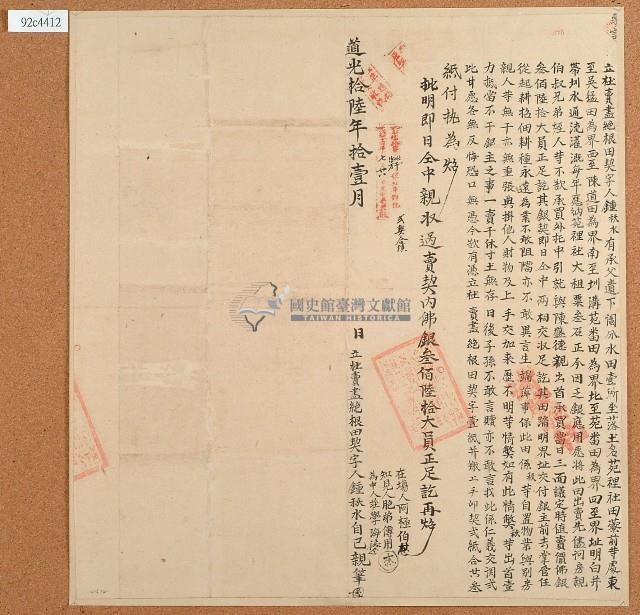 92c4412
立杜賣盡絕根田契字人鍾秋水有承父遺下鬮分水田壹所坐落土名苑裡社田藔前等處東
至吳猛田為界西至陳道田為界南至圳溝苑番田為界北至苑番田為界四至界址明白并
帶圳水通流灌溉每年應納苑裡社大租粟叁石正今因乏銀應用愿將此田出賣先儘問房親
伯叔兄弟姪人等不欲承買外托中引就與陳盛德親出首承買當日三面議定時值賣價佛銀
叁佰陸拾大員正足訖其銀契即日仝中兩相交收足訖其田踏明界址交付銀主前去掌管任
從起耕招佃耕種永遠為業不敢阻擋亦不敢異言生端滋事保此田係秋等自置物業與別房
親人等無干亦無重張典掛他人財物及上手交加來歷不明等情弊如有此情弊秋等出首壹
力抵當不干銀主之事一賣千休寸土無存日後子孫不敢言贖亦不敢言找此係仁義交關弍
比甘愿各無反悔恐口無憑今欲有憑立杜賣盡絕根田契字壹紙并繳上手印契弍紙合共叁
紙付執為炤
批明即日仝中親收過賣契內佛銀叁佰陸拾大員正足訖再炤
在場人阿極伯
知見人胞弟傳用
為中人莊學
道光拾陸年拾壹月 日立杜賣盡絕根田契字人鍾秋水自己親筆
國史館臺灣文獻館
TAIWAN HISTORICA